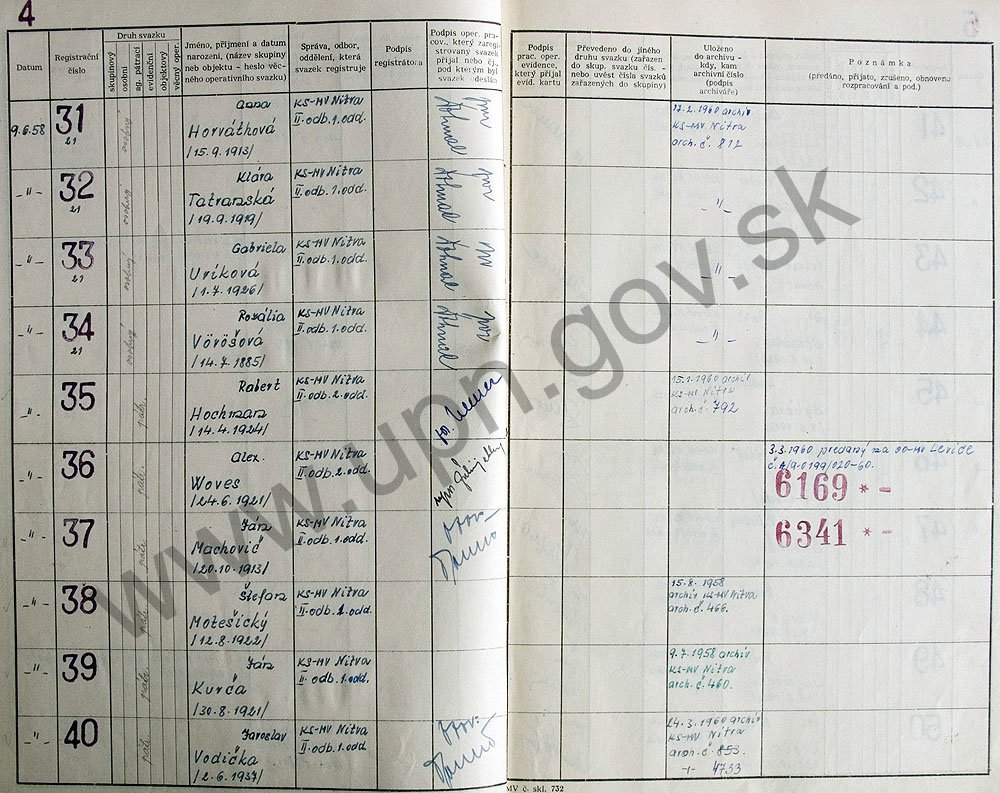 4
Datum
Registrační číslo
Druh svazku
skupinový
osobní
ag. pátrací
evidenční
objektový
věcný oper.
Jméno, příjmení a datum
narození, (název skupiny
neb objektu - heslo věc-
ného operativního svazku)
Správa, odbor,
oddělení, která
svazek registruje
Podpis
registrátora
Podpis oper. pra-
cov., který zareg-
istrovaný svazek
přijal nebo čj.,
pod kterým byl
svazek odeslán
Podpis
prac. oper.
evidence,
který přijal
evid. kartu
Převedeno do jiného
druhu svazku (zařazen
do skup. svazku čís. -
nebo uvést čísla svazků
zařazených do skupiny)
Uloženo
do archivu -
kdy, kam
archivní číslo
(podpis
archiváře)
Poznámka
(předáno, přijato, zrušeno, obnoveno
rozpracování a pod.)
9.6.58 31 21 osobný Anna Horváthová /15.9.1913/ KS-MV Nitra II. odb. 1. odd. 17.2.1960 archív KS-MV Nitra arch. č. 812
-"- 32 21 osobný Klára Tatranská /19.9.1919/ KS-MV Nitra II. odb. 1. odd. -"-
-"- 33 21 osobný Gabriela Uríková /1.7.1926/ KS-MV Nitra II. odb. 1. odd. -"-
-"- 34 21 osobný Rozália Vörösová /14.7.1885/ KS-MV Nitra II. odb. 1. odd. -"-
-"- 35 Robert Hochman /14.4.1924/ KS-MV Nitra II. odb. 2. odd. 15.1.1960 archív KS-MV Nitra arch. č. 792
-"- 36 Alex. Woves /24.6.1921/ KS-MV Nitra II. odb. 2. odd. 3.3.1960 predaný na OO-MV Levice č. A/9-0199/020-60. 6169 * -
-"- 37 Ján Machovič /20.10.1913/ KS-MV Nitra II. odb. 1. odd. 6341 * -
-"- 38 Štefan Motešický /12.8.1922/ KS-MV Nitra II. odb. 1. odd. 15.8.1958 archív KS-MV Nitra arch. č. 466.
-"- 39 Ján Kurča /30.8.1921/ KS-MV Nitra II. odb. 1. odd. 9.7.1958 archív KS-MV Nitra arch. č. 460.
-"- 40 Jaroslav Vodička /2.6.1937/ KS-MV Nitra II. odb. 1. odd. 24.3.1960 archív KS-MV Nitra arch. č. 853 -"- 4733
MV č. skl. 732
www.upn.gov.sk